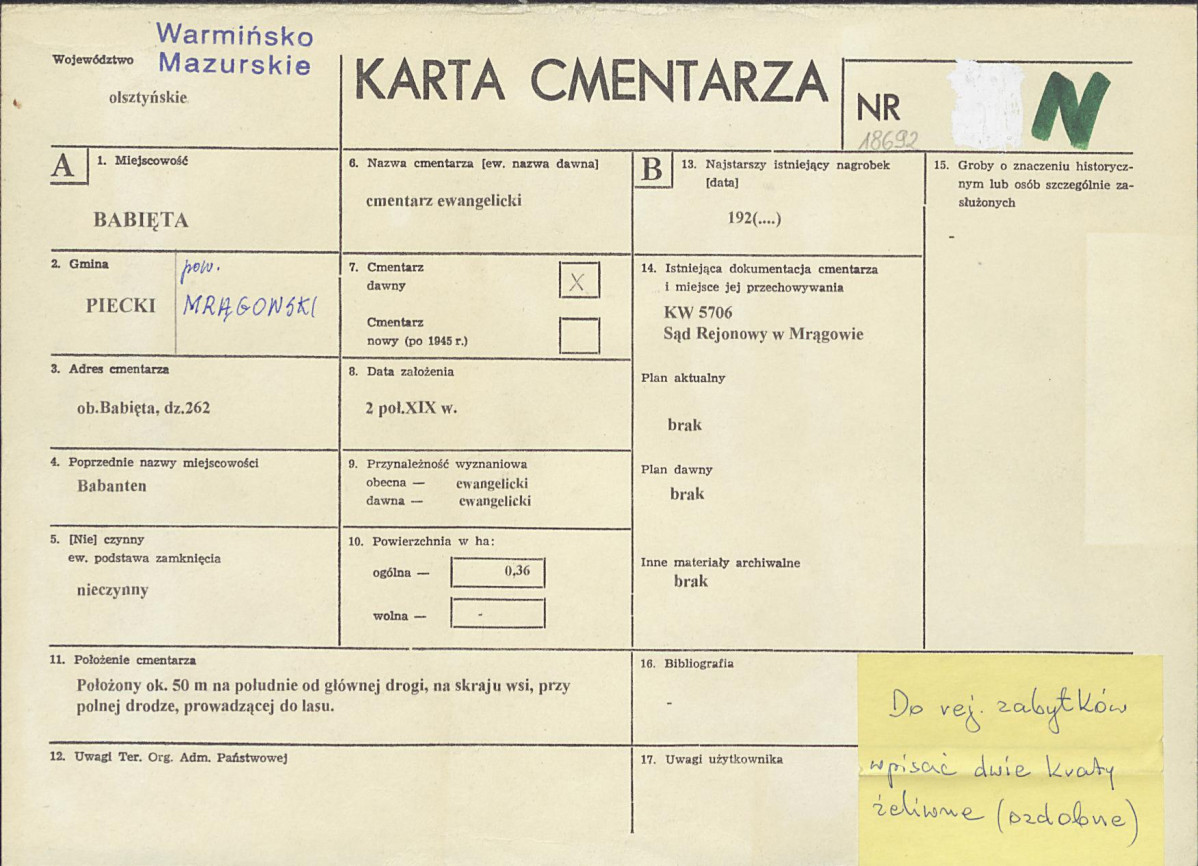 Warmińsko
Województwo Mazurskie
olsztyńskie
KARTA CMENTARZA
NR
18692
N
A
1. Miejscowość
BABIĘTA
2. Gmina
PIECKI
pow.
MRĄGOWSKI
3. Adres cmentarza
ob.Babięta, dz.262
4. Poprzednie nazwy miejscowości
Babanten
5. [Nie] czynny
ew. podstawa zamknięcia
nieczynny
6. Nazwa cmentarza [ew. nazwa dawna]
cmentarz ewangelicki
7. Cmentarz
dawny X
Cmentarz
nowy (po 1945 r.)
8. Data założenia
2 poł.XIX w.
9. Przynależność wyznaniowa
obecna — ewangelicki
dawna — ewangelicki
10. Powierzchnia w ha:
ogólna — 0,36
wolna — -
11. Położenie cmentarza
Położony ok. 50 m na południe od głównej drogi, na skraju wsi, przy
polnej drodze, prowadzącej do lasu.
12. Uwagi Ter. Org. Adm. Państwowej
B
13. Najstarszy istniejący nagrobek
[data]
192(....)
14. Istniejąca dokumentacja cmentarza
i miejsce jej przechowywania
KW 5706
Sąd Rejonowy w Mrągowie
Plan aktualny
brak
Plan dawny
brak
Inne materiały archiwalne
brak
15. Groby o znaczeniu historycz-
nym lub osób szczególnie za-
służonych
-
16. Bibliografia
-
17. Uwagi użytkownika
Do rej. zabytków
wpisać dwie kraty
żeliwne (ozdobne)